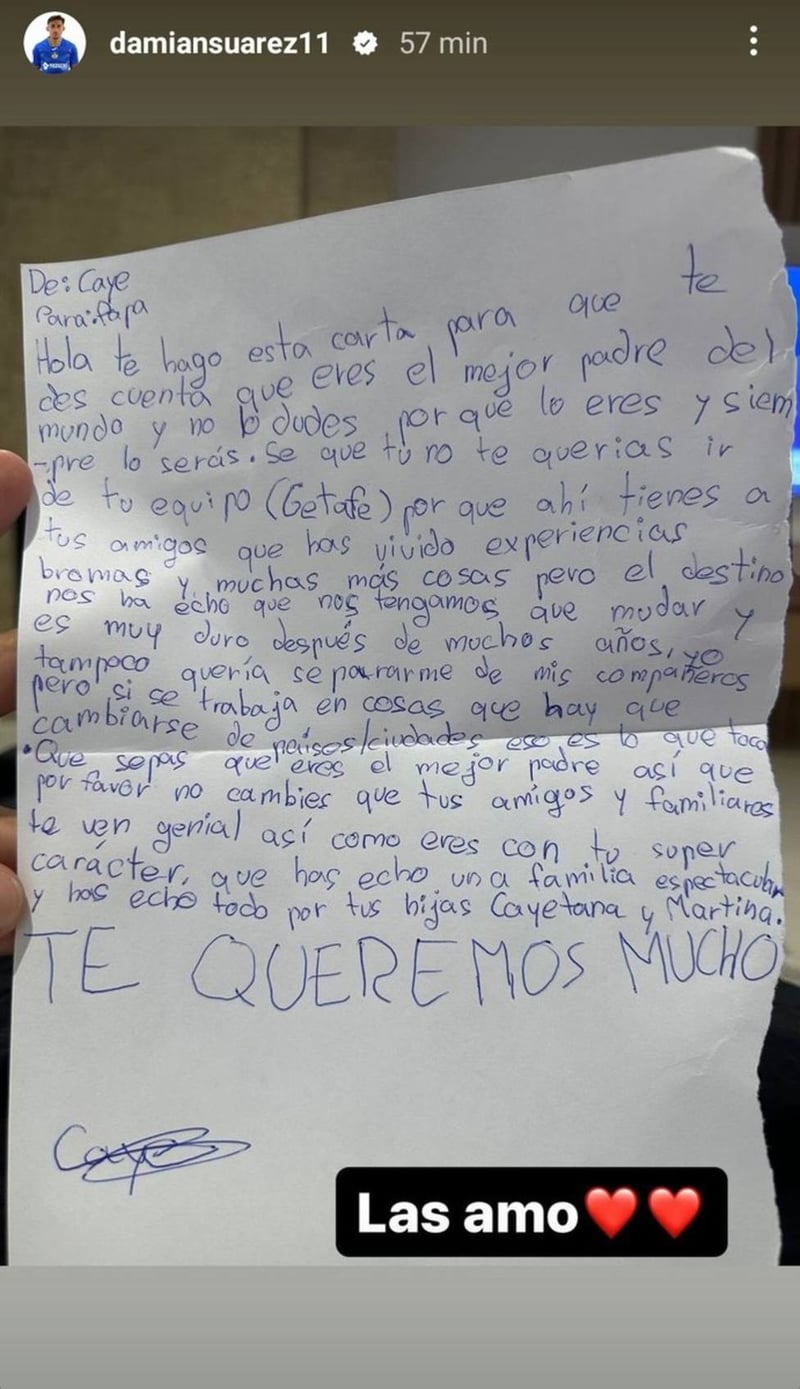 damiansuarez11 57 min
De: Caye
Para: Papa
Hola te hago esta carta para que te
des cuenta que eres el mejor padre del
mundo y no lo dudes por que lo eres y siem
-pre lo serás. Se que tú no te querias ir
de tu equipo (Getafe) por que ahí tienes a
tus amigos que has vivido experiencias
bromas y muchas más cosas pero el destino
nos ha echo que nos tengamos que mudar y
es muy duro después de muchos años, yo
tampoco quería separarme de mis compañeros
pero si se trabaja en cosas que hay que
cambiarse de países/ciudades eso es lo que toca
•Que sepas que eres el mejor padre así que
por favor no cambies que tus amigos y familiares
te ven genial así como eres con tu super
carácter, que has echo una familia espectacular
y has echo todo por tus hijas Cayetana y Martina.
TE QUEREMOS MUCHO
Caye
Las amo❤️❤️